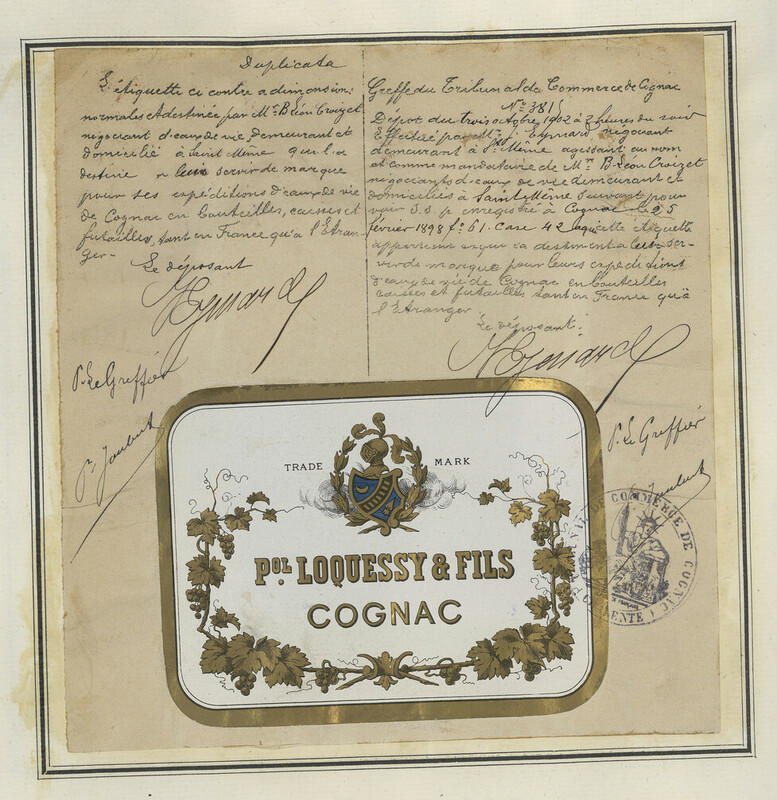 Duplicata
L'étiquette ci contre a dimensions
normales et destinée par Mr. B. Léon Croizet
négociant d'eaux de vie demeurant et
domicilié à Saint Même qui la
destine a leur servir de marque
pour ses expéditions d'eaux de vie
de Cognac en bouteilles, caisses et
futailles, tant en France qu'à l'Etran-
ger-
Le déposant
Eymard
Pr. Le Greffier
Greffe du Tribunal de Commerce de Cognac
No. 3815
Dépôt du trois octobre 1902 à 2 heures du soir
Effectué par Mr. Eymard négociant
demeurant à St Même agissant au nom
et comme mandataire de Mr. B. Léon Croizet
négociants d'eaux de vie demeurant et
domiciliés à Saint Même suivant pou-
voir S.S. p enregistré à Cognac le 25
février 1898 fo 61. Case 42 laquelle étiquette
appartient et qu'il la destine a leur ser-
vir de marque pour leurs expéditions
d'eaux de vie de Cognac en bouteilles
caisses et futailles tant en France qu'à
l'Etranger
Le déposant.
Eymard
Pr. Le Greffier
TRADE MARK
POL. LOQUESSY & FILS
COGNAC
TRIBUNAL DE COMMERCE DE COGNAC